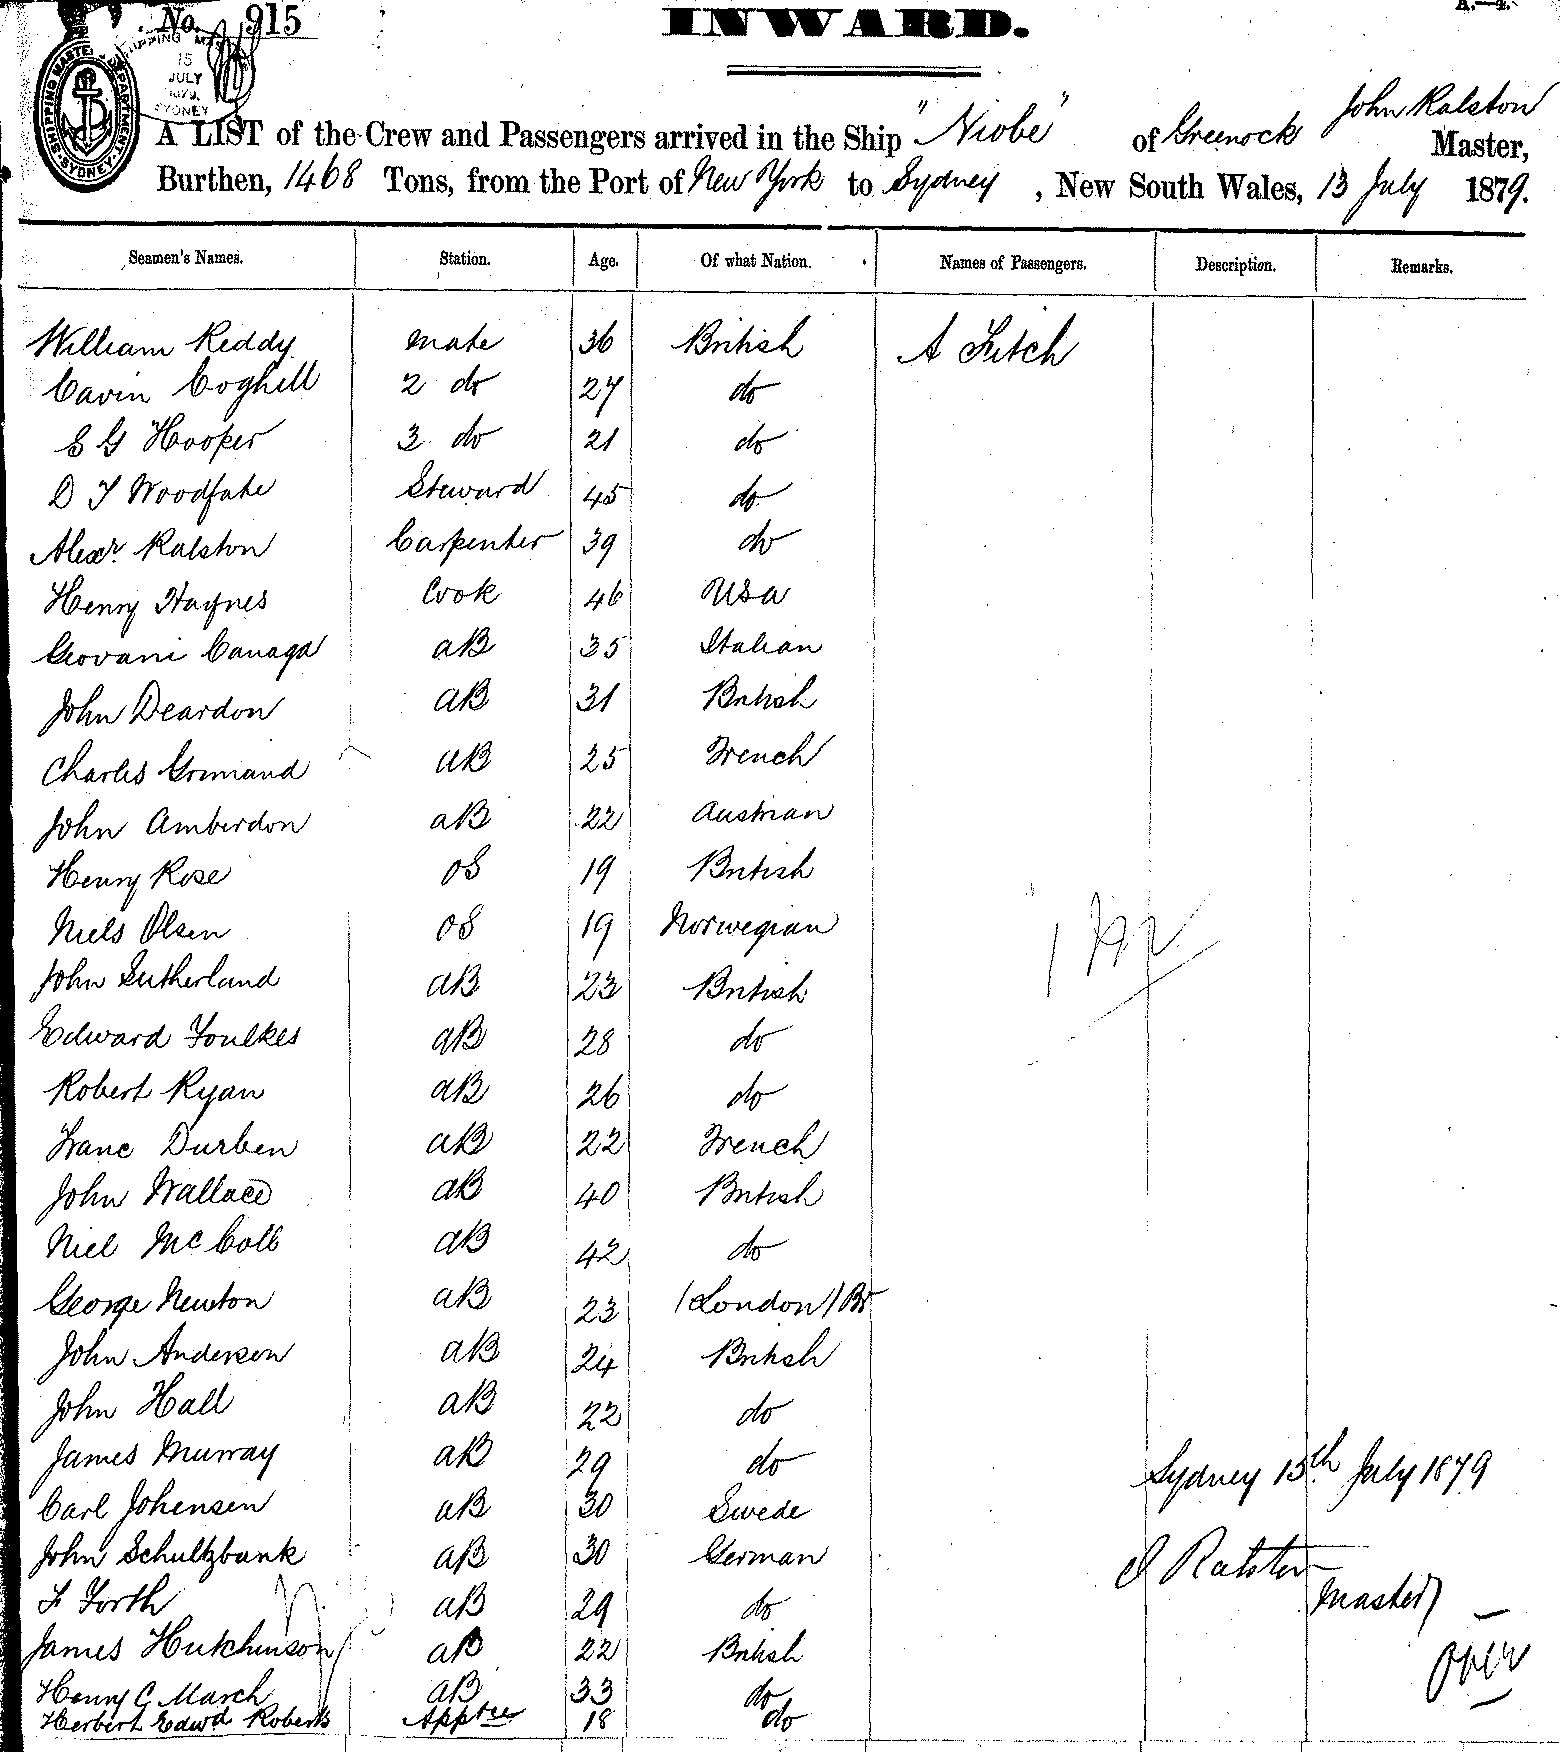 No. 915
INWARD.
A.—4.
SHIPPING MASTER'S DEPARTMENT SYDNEY
15
JULY
1879
SYDNEY
John Ralston
A LIST of the Crew and Passengers arrived in the Ship "Niobe" of Greenock Master,
Burthen, 1468 Tons, from the Port of New York to Sydney, New South Wales, 13 July 1879.
Seamen's Names. Station. Age. Of what Nation. Names of Passengers. Description. Remarks.
William Reddy mate 36 British A Fitch
Cavin Coghill 2 do 27 do
E G Hooper 3 do 21 do
D T Woodfake Steward 45 do
Alexr. Ralston Carpenter 39 do
Henry Haynes Cook 46 USA
Geovani Canaga aB 35 Italian
John Deardon aB 31 British
Charles Grimand aB 25 French
John Amberdon aB 22 Austrian
Henry Rose OS 19 British
Niels Olsen OS 19 Norwegian
John Sutherland aB 23 British
Edward Foulkes aB 28 do
Robert Ryan aB 26 do
Franc Durben aB 22 French
John Wallace aB 40 British
Niel McColl aB 42 do
George Newton aB 23 (London) Br
John Anderson aB 24 British
John Hall aB 22 do
James Murray aB 29 do
Sydney 15th July 1879
Carl Johensen aB 30 Swede
John Schultzbank aB 30 German
J Ralston
Master
F Forth aB 29 do
James Hutchinson aB 22 British
over
Henry C March aB 33 do
Herbert Edwd Roberts Apptce 18 do